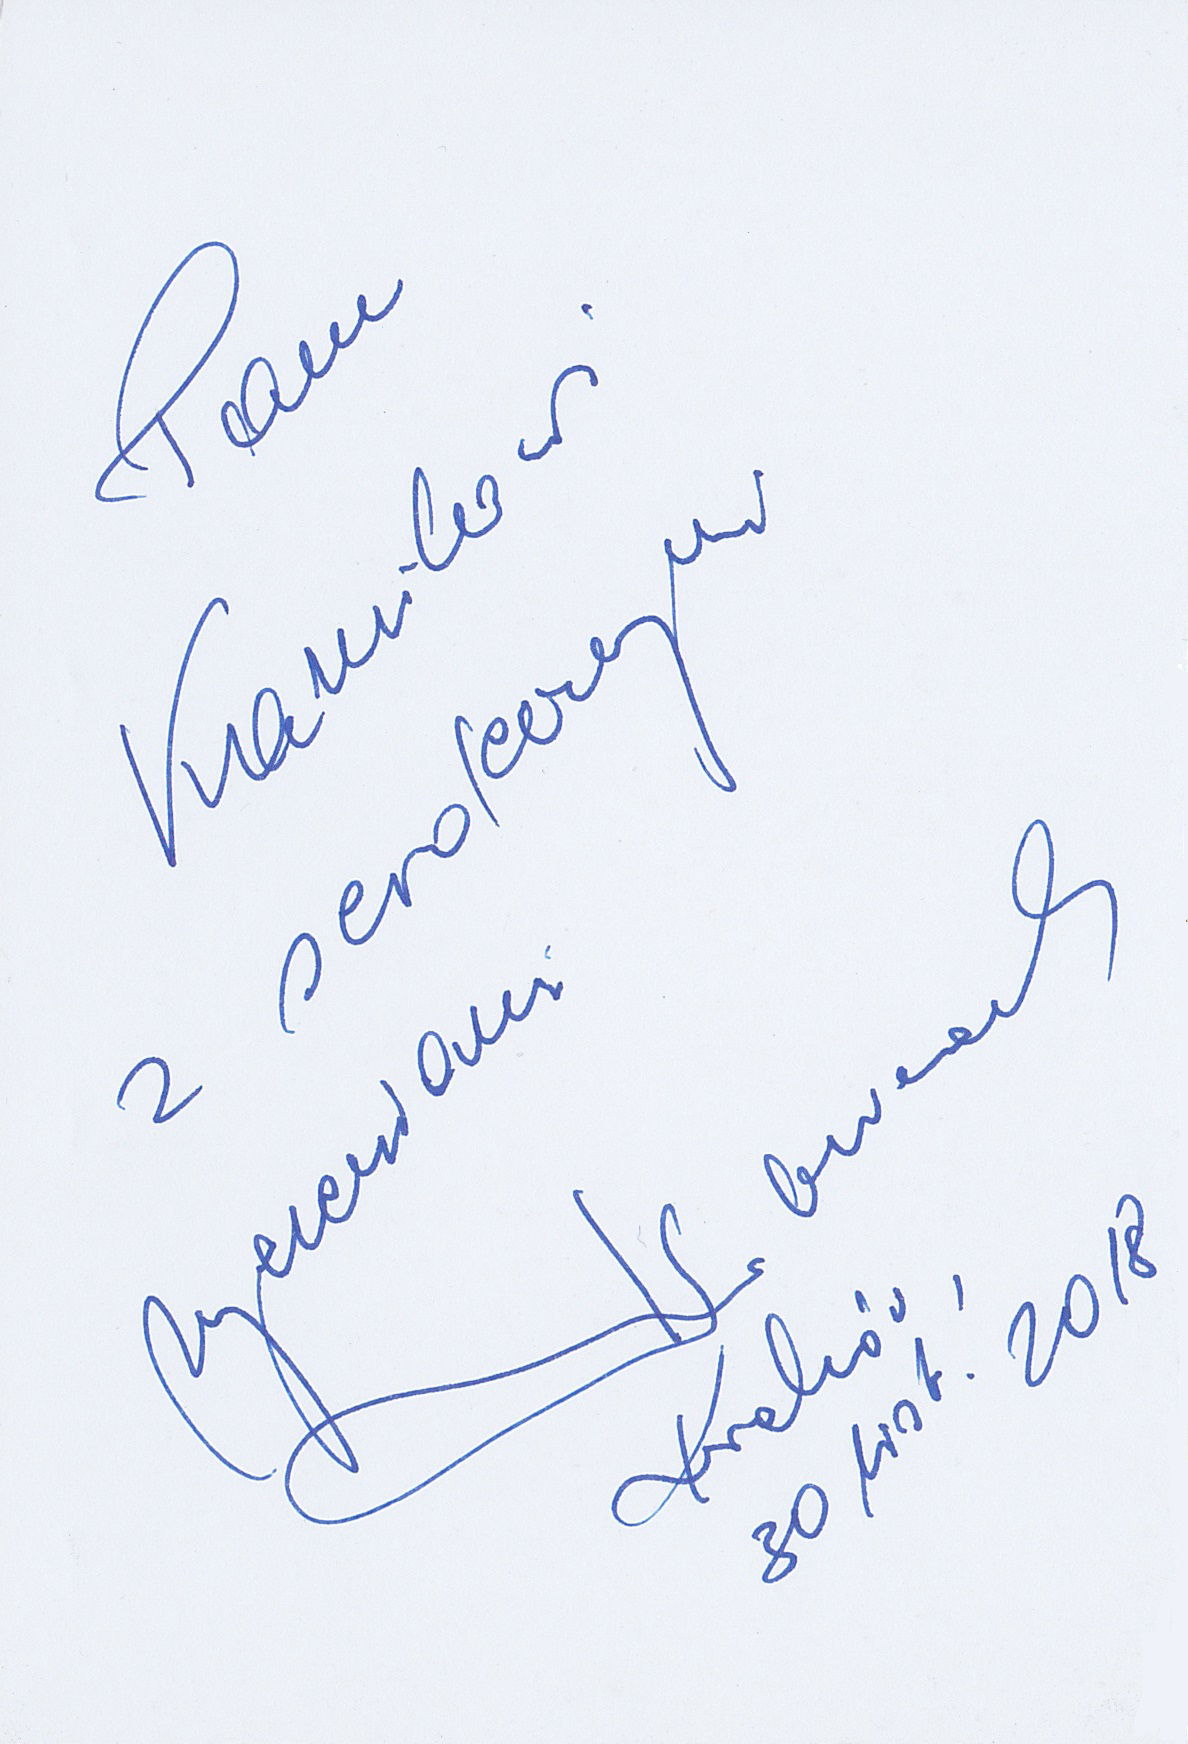 Panu
Kamilowi
z serdecznymi
życzeniami
Kraków,
30 list. 2018